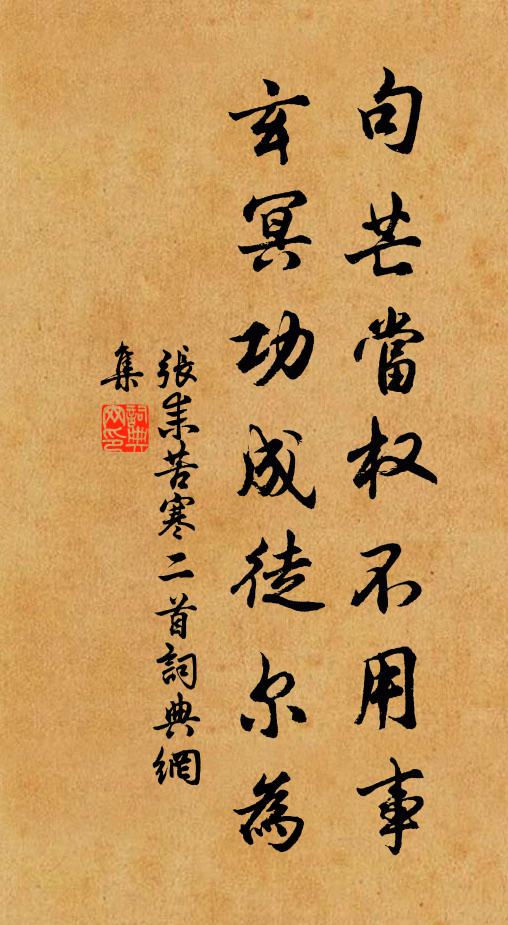 句芒當权不用事
玄冥功成徒尔為
張耒苦寒二首詞典網
集
詞典
网印